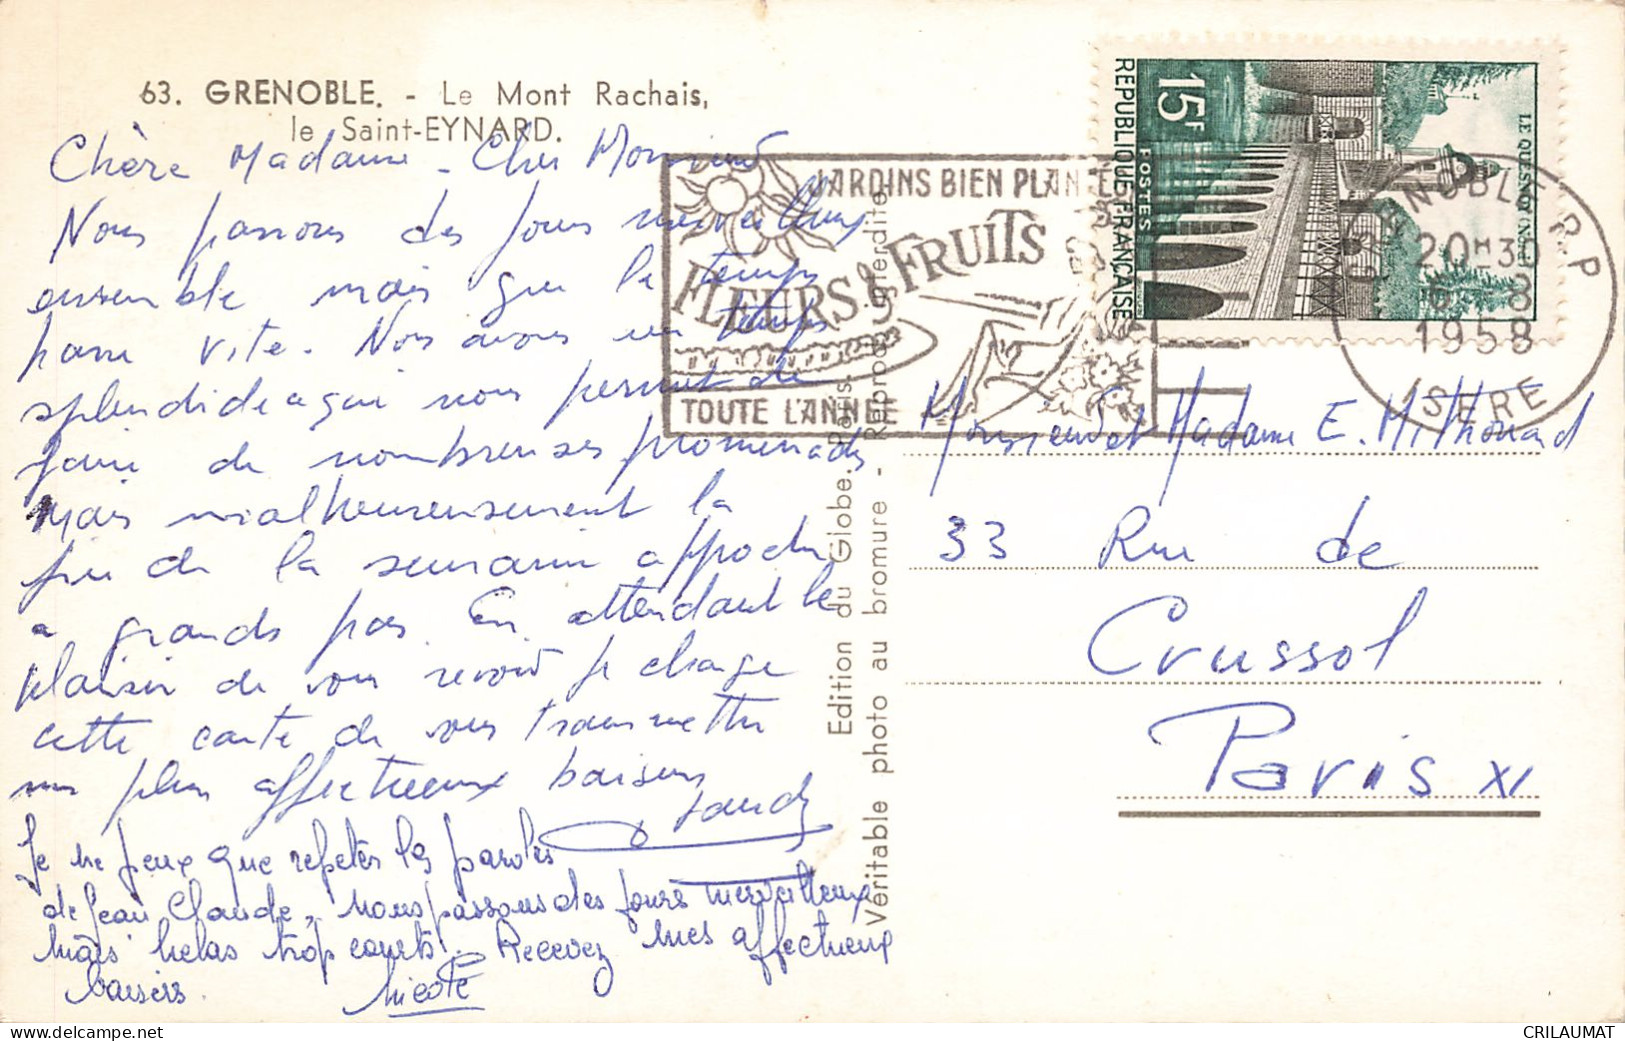 63. GRENOBLE. - Le Mont Rachais,
le Saint-EYNARD.
Chère Madame - Cher Monsieur
Nous passons des jours merveilleux
ensemble mais que le temps
passe vite. Nous avons un temps
splendide qui nous permet de
faire de nombreuses promenades
mais malheureusement la
fin de la semaine approche
a grands pas. En attendant le
plaisir de vous revoir je charge
cette carte de vous transmettre
mes plus affectueux baisers
Je ne peux que repeter les paroles
de Jean Claude, nous passons des jours merveilleux
mais helas trop courts. Recevez mes affectueux
baisers. Nicole
Edition du Globe, Paris.
Véritable photo au bromure - Reproduction interdite
JARDINS BIEN PLANTES
FLEURS & FRUITS
TOUTE L'ANNÉE
RÉPUBLIQUE FRANÇAISE
POSTES
15F
LE QUESNOY (NORD)
GRENOBLE R.P
20H30
6 - 8
1958
ISERE
Monsieur et Madame E. Mithouard
33 Rue de
Crussol
Paris XI
delcampe.net
CRILAUMAT